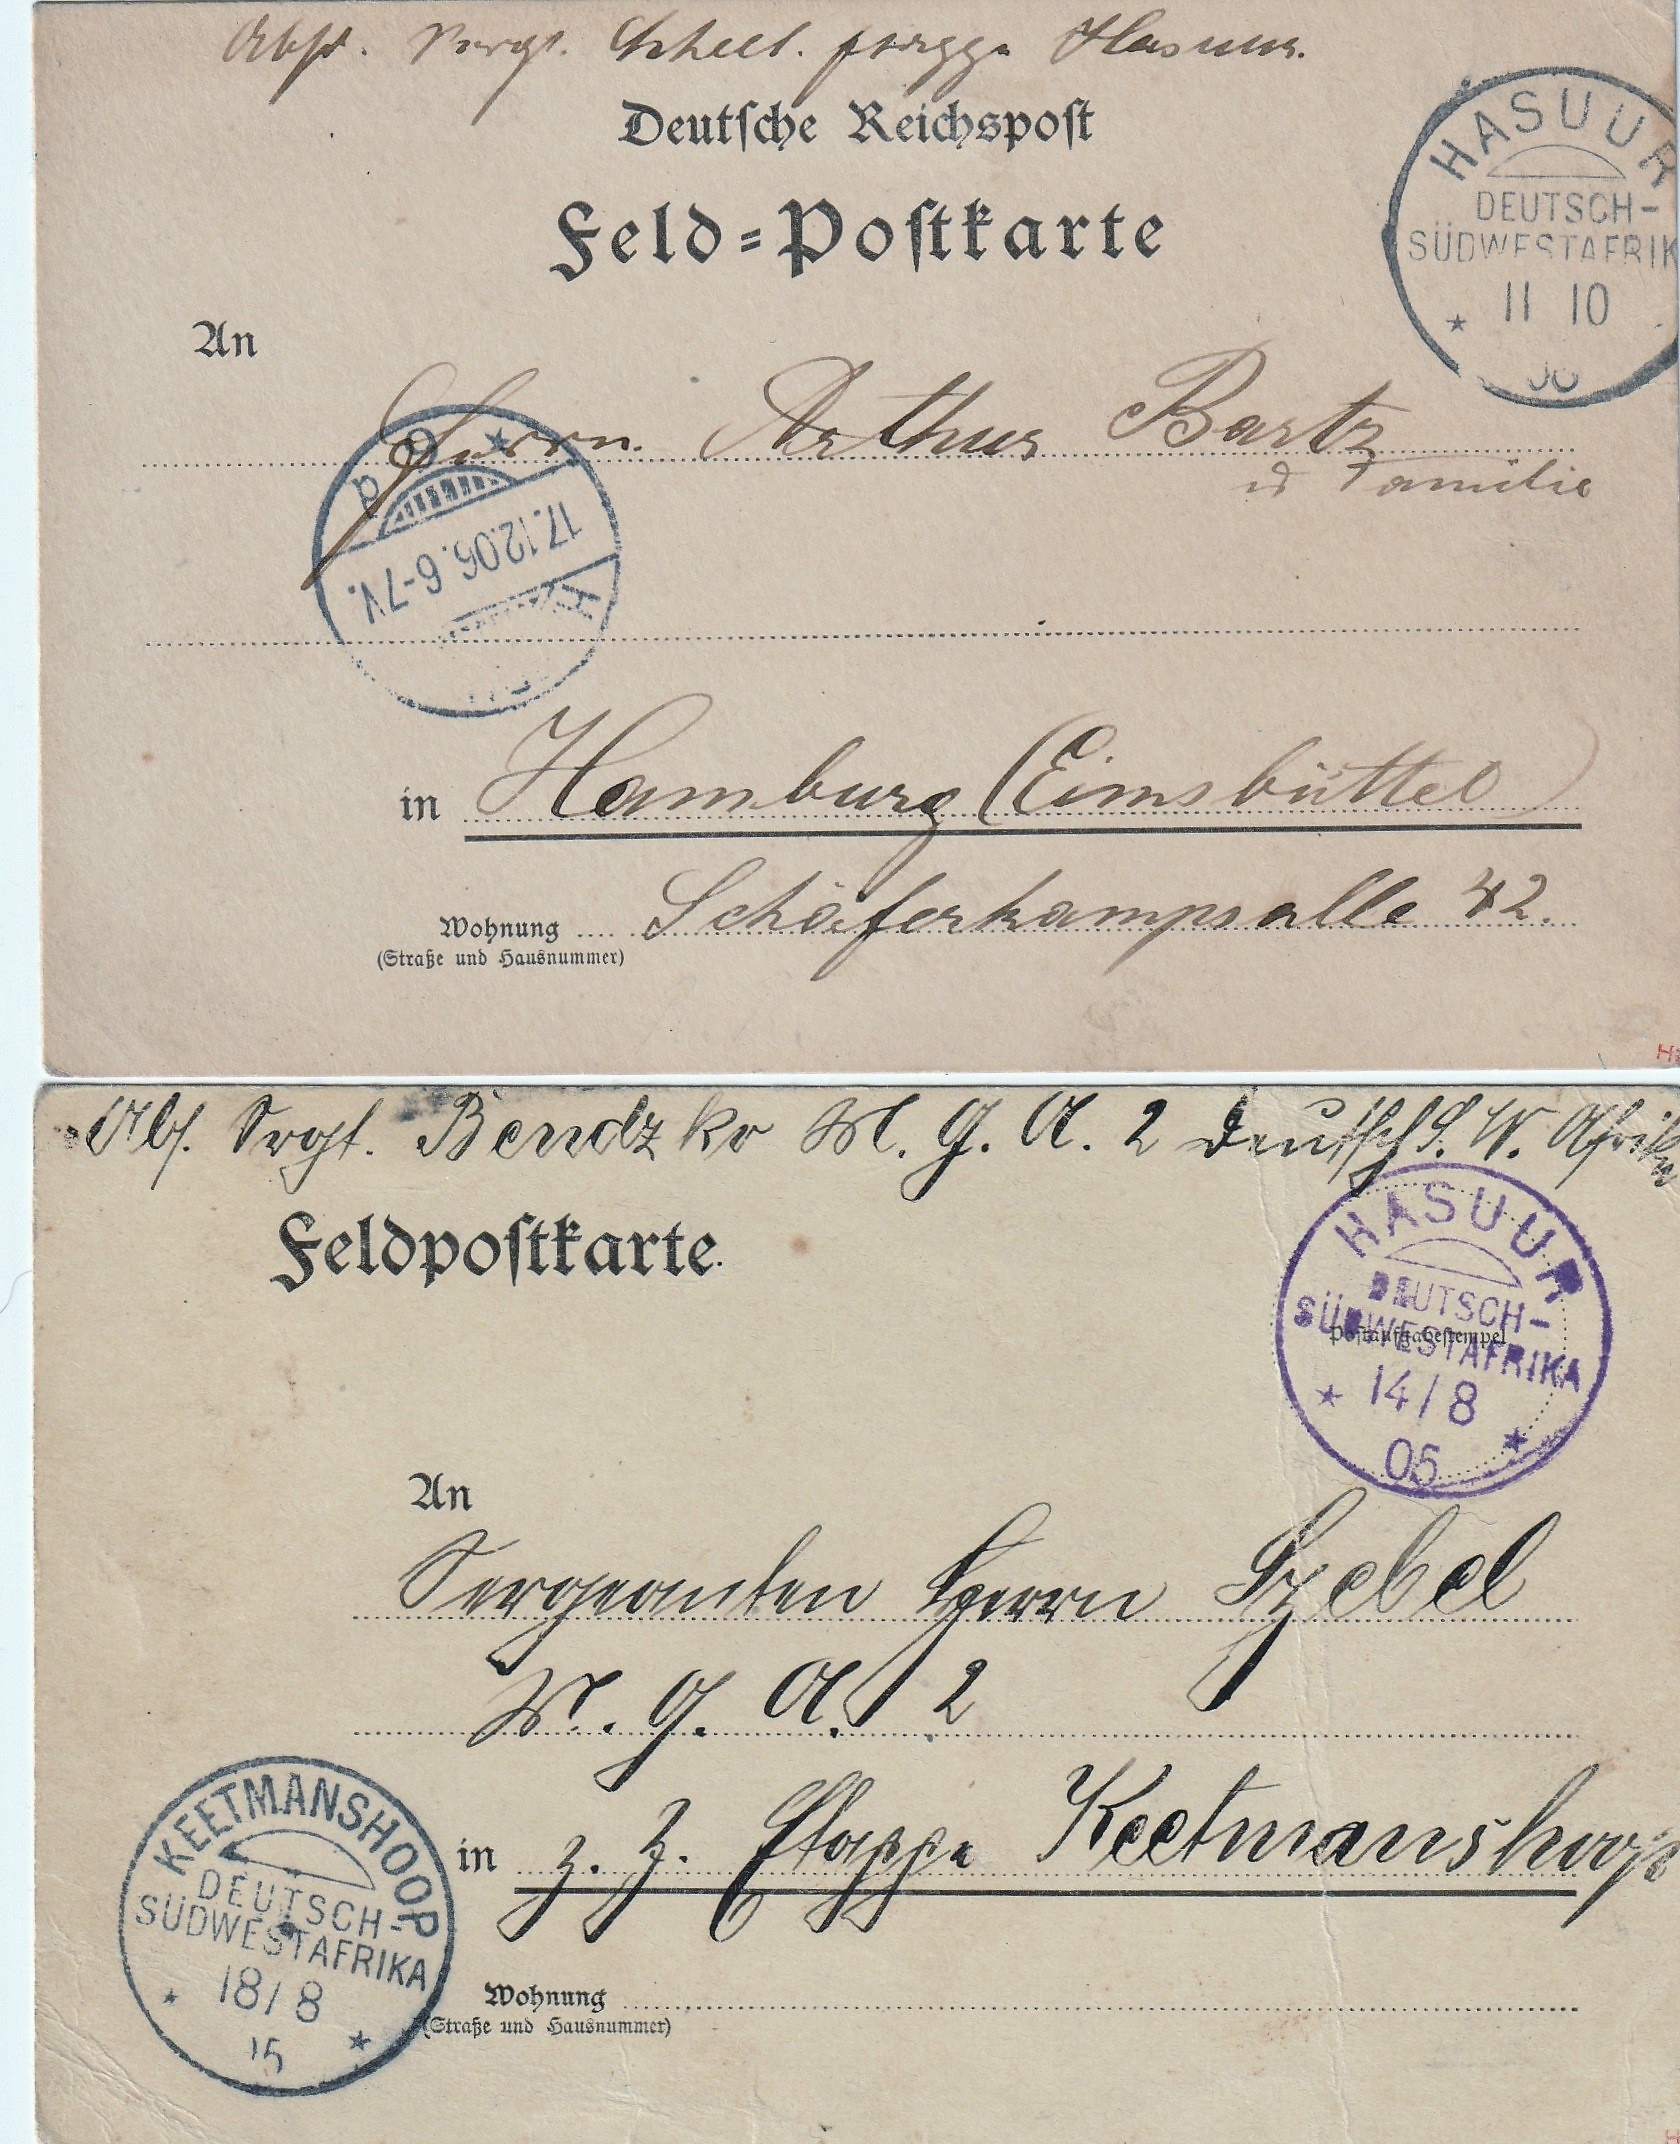 Abs. Sergt. Scheel. p. Hasuur.
Deutsche Reichspost
Feld-Postkarte
HASUUR
DEUTSCH-
SÜDWESTAFRIK
11 10
06
An
Herrn. Arthur Bartz
u Familie
17.12.06. 6-7V.
in Hamburg (Eimsbüttel)
Wohnung Schäferkampsalle 42.
(Straße und Hausnummer)
Abs. Srgt. Bendzko M. G. A. 2 Deutsch S. W. Afrika
Feldpostkarte.
HASUUR
DEUTSCH-
SÜDWESTAFRIKA
Postaufgabestempel
14/8
05
An
Sergeanten Herrn
M. G. A. 2
KEETMANSHOOP
DEUTSCH-
SÜDWESTAFRIKA
18/8
in z. Z. Etappe Keetmanshoop
Wohnung
(Straße und Hausnummer)